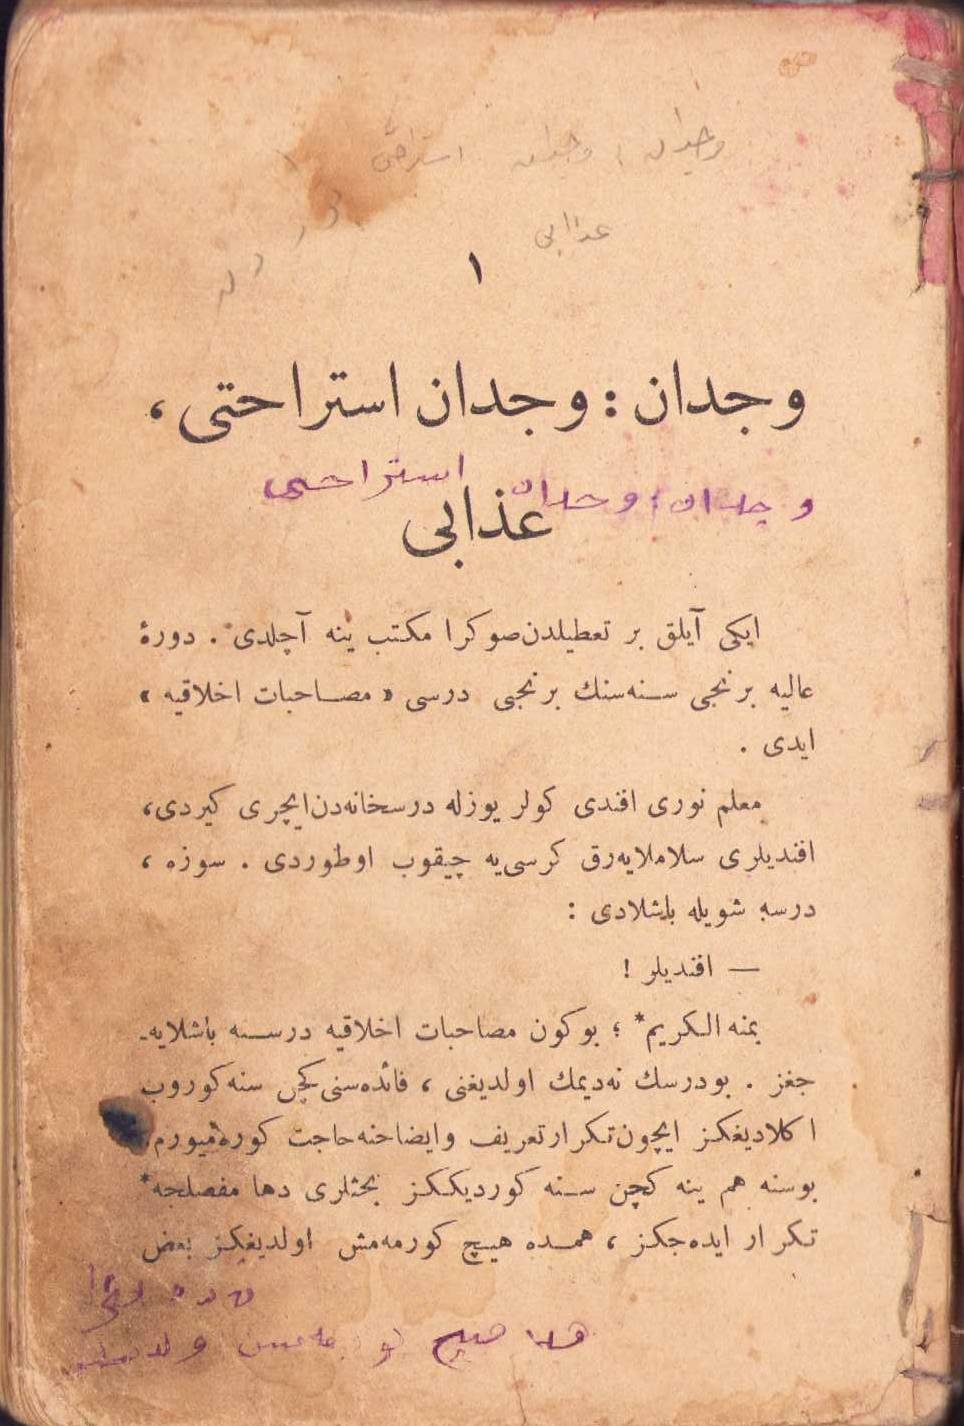 وجدان : وجدان استراحتى
عذابى
١
وجدان : وجدان استراحتى ،
وجدان : وجدان استراحتى
عذابى
ايكى آيلق بر تعطيلدن صوكرا مكتب ينه آچلدى . دورهٔ
عاليه برنجى سنه‌سنك برنجى درسى « مصاحبات اخلاقيه »
ايدى .
معلم نورى افندى كولر يوزله درسخانه‌دن ايچرى كيردى ،
افنديلرى سلاملايه‌رق كرسى‌يه چيقوب اوطوردى . سوزه ،
درسه شويله باشلادى :
— افنديلر !
بمنه الكريم* ؛ بوكون مصاحبات اخلاقيه درسنه باشلايه‌-
جغز . بودرسك نه‌ديمك اولديغنى ، فائده‌سنى كچن سنه كوروب
اكلاديغكز ايچون تكرار تعريف وايضاحنه حاجت كوره‌ميورم .
بوسنه هم ينه كچن سنه كورديككز بحثلرى دها مفصلجه*
تكرار ايده‌جكز ، همده هيچ كورمه‌مش اولديغكز بعض